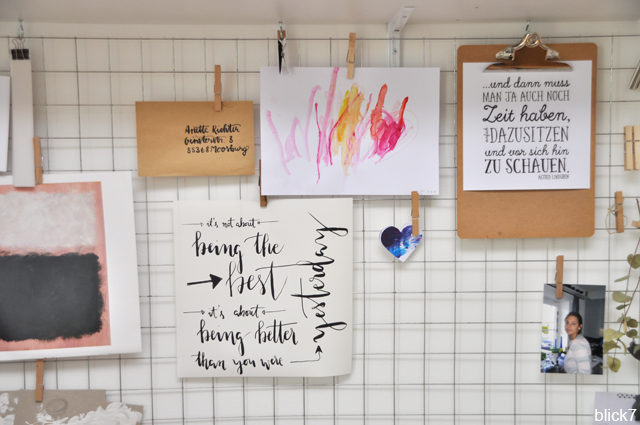 85368 Moosburg
...und dann muss
MAN JA AUCH NOCH
Zeit haben,
DAZUSITZEN
und vor sich hin
ZU SCHAUEN.
ASTRID LINDGREN
it's not about
being the
best
it's about
being better
than you were
yesterday
blick7